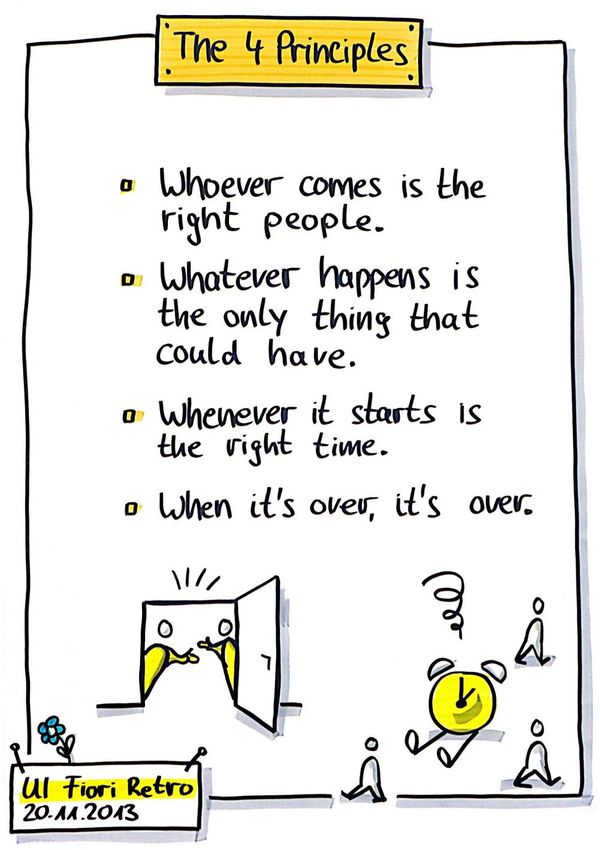 The 4 Principles
Whoever comes is the
right people.
Whatever happens is
the only thing that
could have.
Whenever it starts is
the right time.
When it's over, it's over.
UI Fiori Retro
20.11.2013